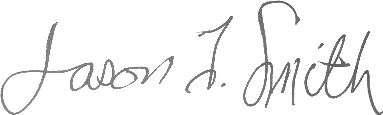 Jason F. Smith